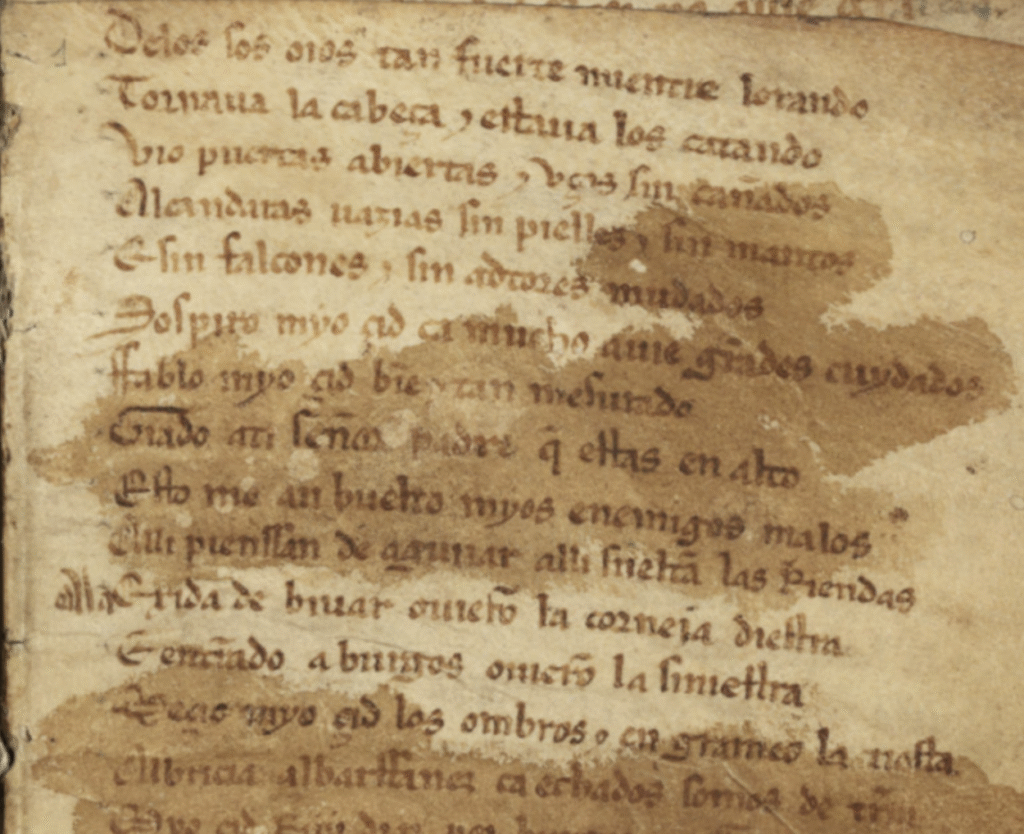 Delos sos oios tan fuerte mientre lorando
Tornaua la cabeça ⁊ estaua los catando
Vio puertas abiertas ⁊ vços sin cañados
Alcandaras uazias sin pielles ⁊ sin mantos
E sin falcones ⁊ sin adtores mudados
Sospiro myo çid ca mucho auie grãdes cuydados
Ffablo myo çid biẽ ⁊ tan mesurado
Grado ati señor padre q̃ estas en alto
Esto me an buelto myos enemigos malos
Alli pienssan de aguijar alli sueltã las Riendas
alla Exida de biuar ouierõ la corneja diestra
E entrãdo a burgos ouierõ la siniestra
Meçio myo çid los ombros ⁊ en grameo la tiesta
Albricia albarffanez ca echados somos de trr̃a